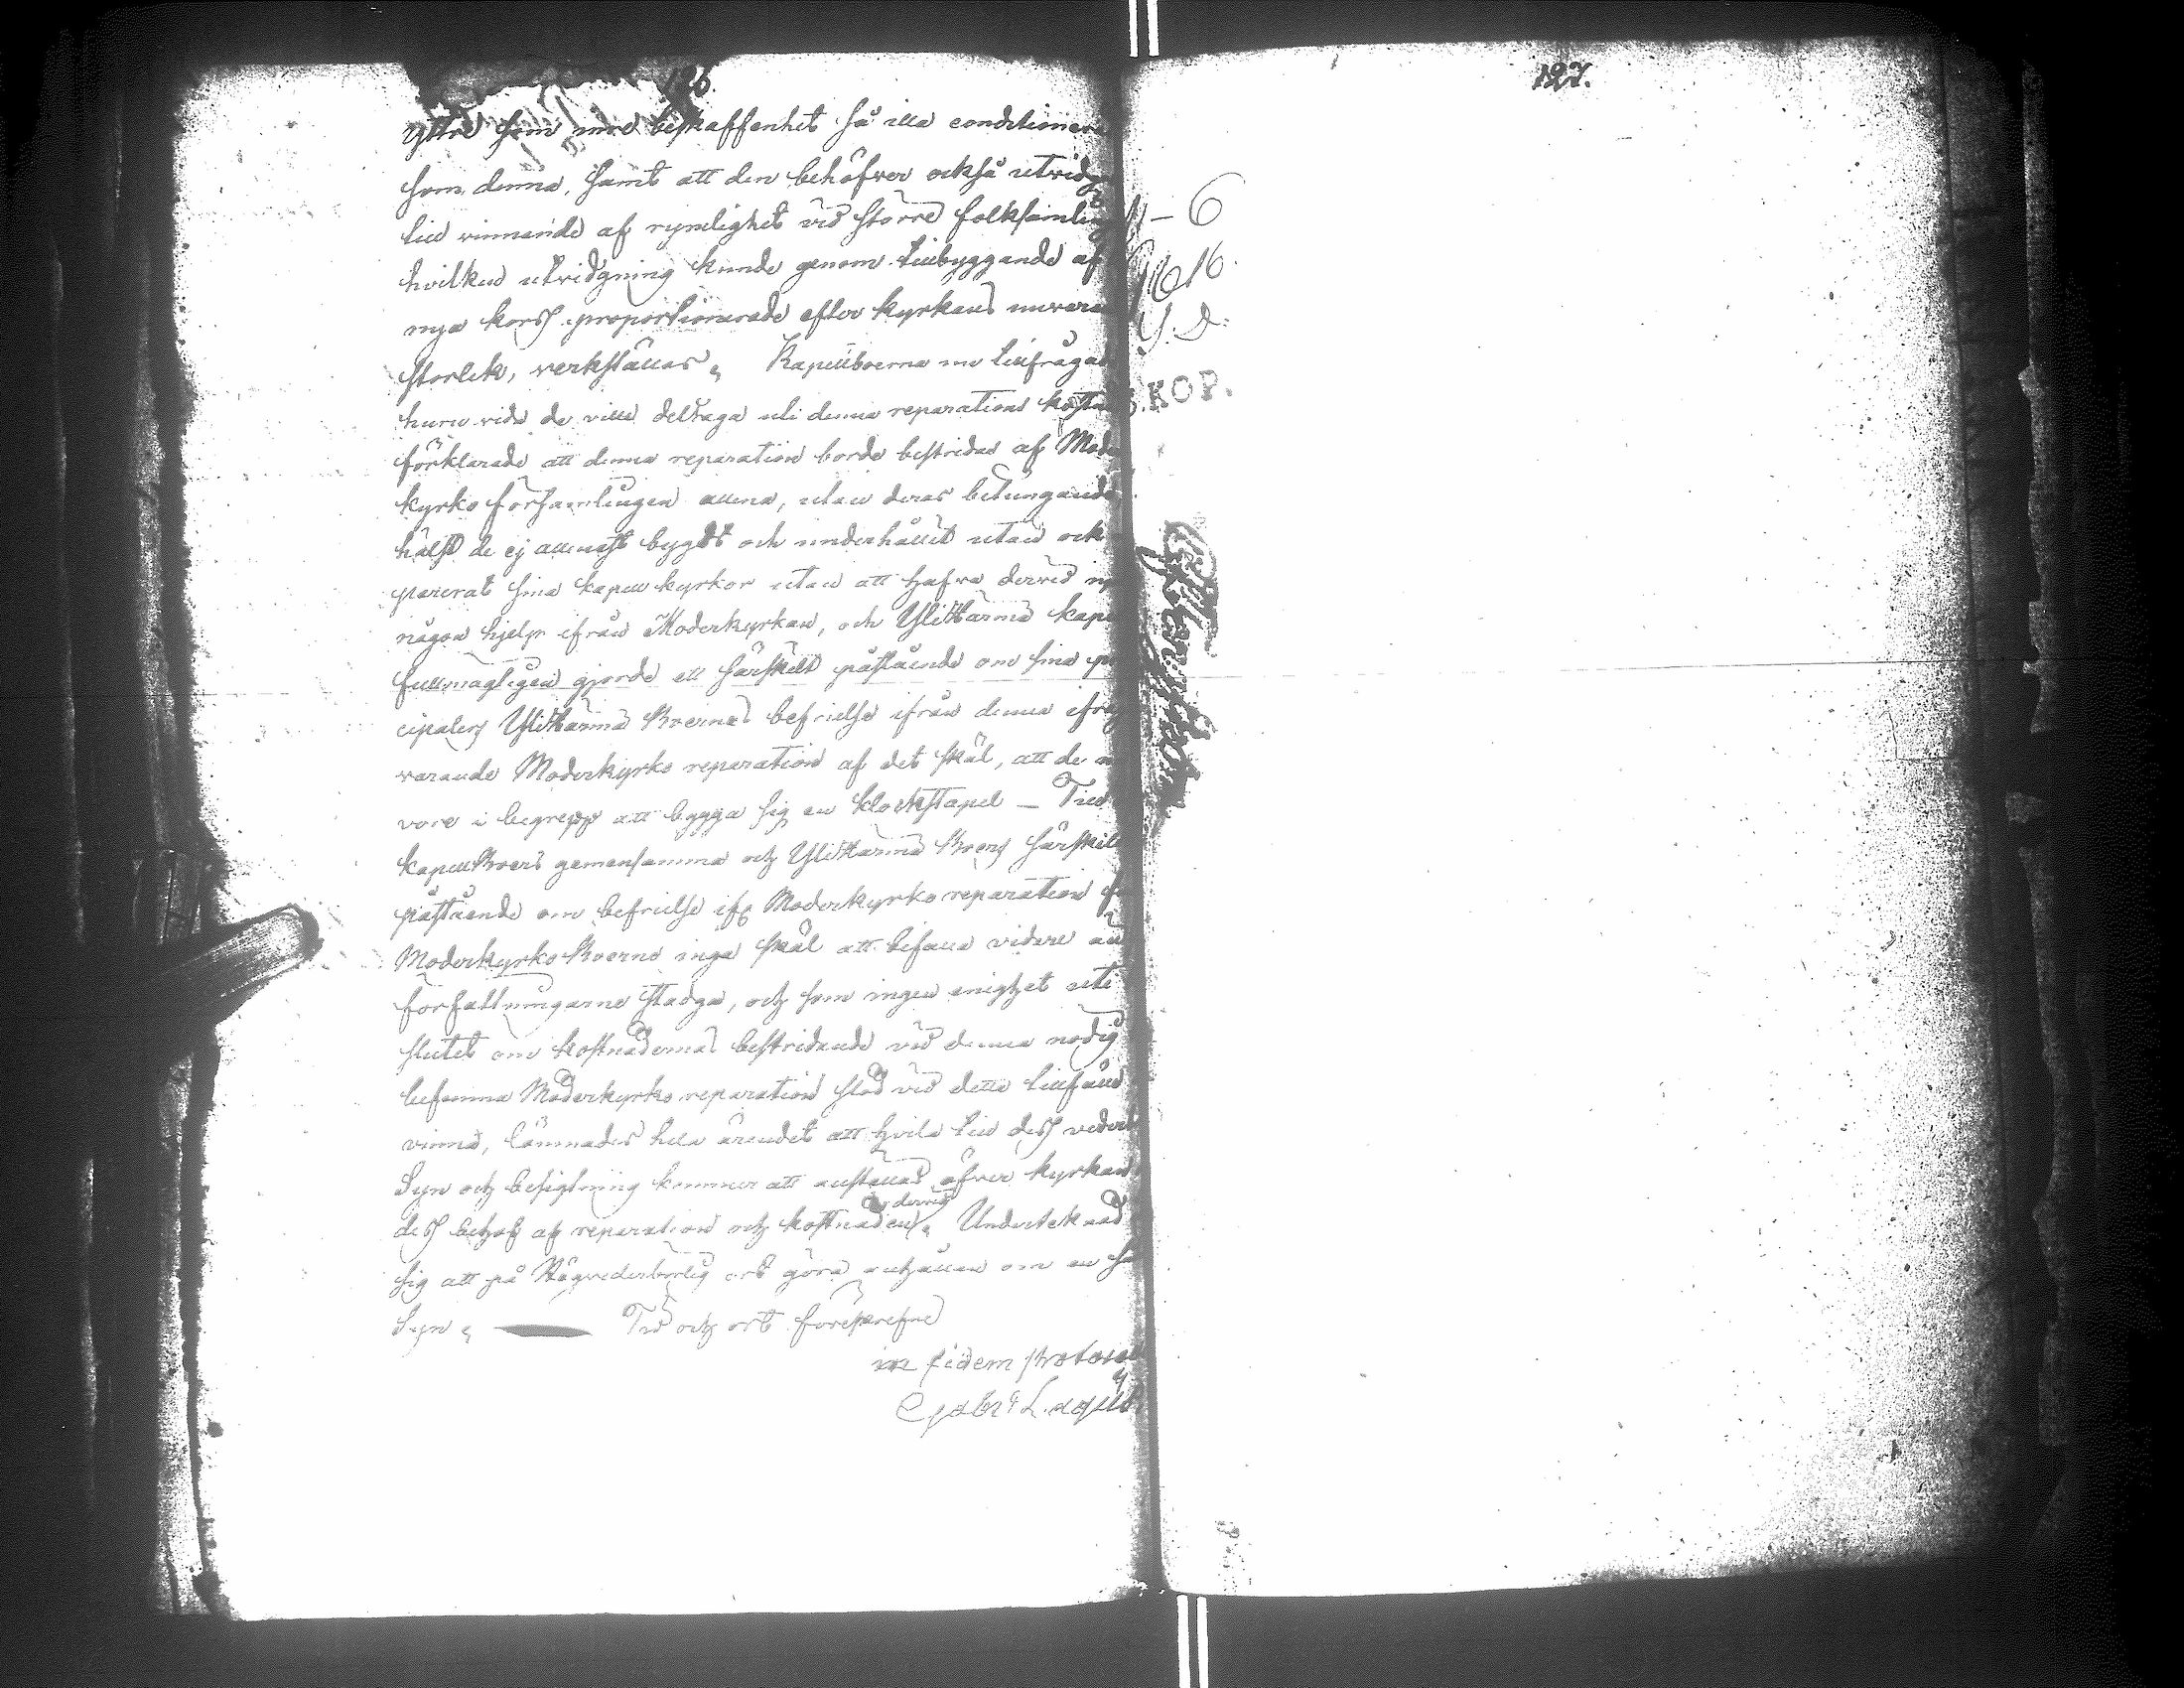 126.
yttre som inre beskaffenhet så illa conditionera
som denna, samt att den behöfver också utvidg
till vinnande af rymlighet vid större folksamling
hvilken utvidgning kunde genom tillbyggande af
nya korss proportionerade efter kyrkans nuvara
storlek, verkställas, Kapellboerna nu tillfrågad
huru vida de ville deltaga uti denna reparations kostn
förklarade att denna reparation borde bestridas af Mode
kyrko församlingen allena, utan deras betungande
hälst de ej allenast bygdt och underhållit utan ock
parerat sina kapell kyrkor utan att hafva dervid
någon hjelp ifrån Moderkyrkan, och Ylihärmä kape
fullmägtigen gjorde ett särskilt påstående om sina
cipalers Ylihärmä Boernas befrielse ifrån denna ifråg
varande Moderkyrko reparation af det skäl, att de
vore i begrepp att bygga sig en klockstapel — Till
kapellBoers gemensamma och Ylihärmä Boers särskilt
påstående om befrielse ifr Moderkyrko reparation
ModerkyrkoBoerne inga skäl att bifalla vidare än
författningarne stadga, och som ingen enighet uti
slutet om kostnadernas bestridande vid denna nödig
befunna Moderkyrko reparation stod vid detta tillfälle
vinna, lämnades hela ärendet att hvila till dess vederb
Syn och besigtning kommer att anställas öfver kyrkan
dess behof af reparation och kostnaden dervid, Undertecknad
sig att på Högvederbörlig ort göra anhållan om en så
Syn, — Tid och ort föreskrefne
in fidem protocol
Gabr: Lagus
127.
— 6
16.
KOP.